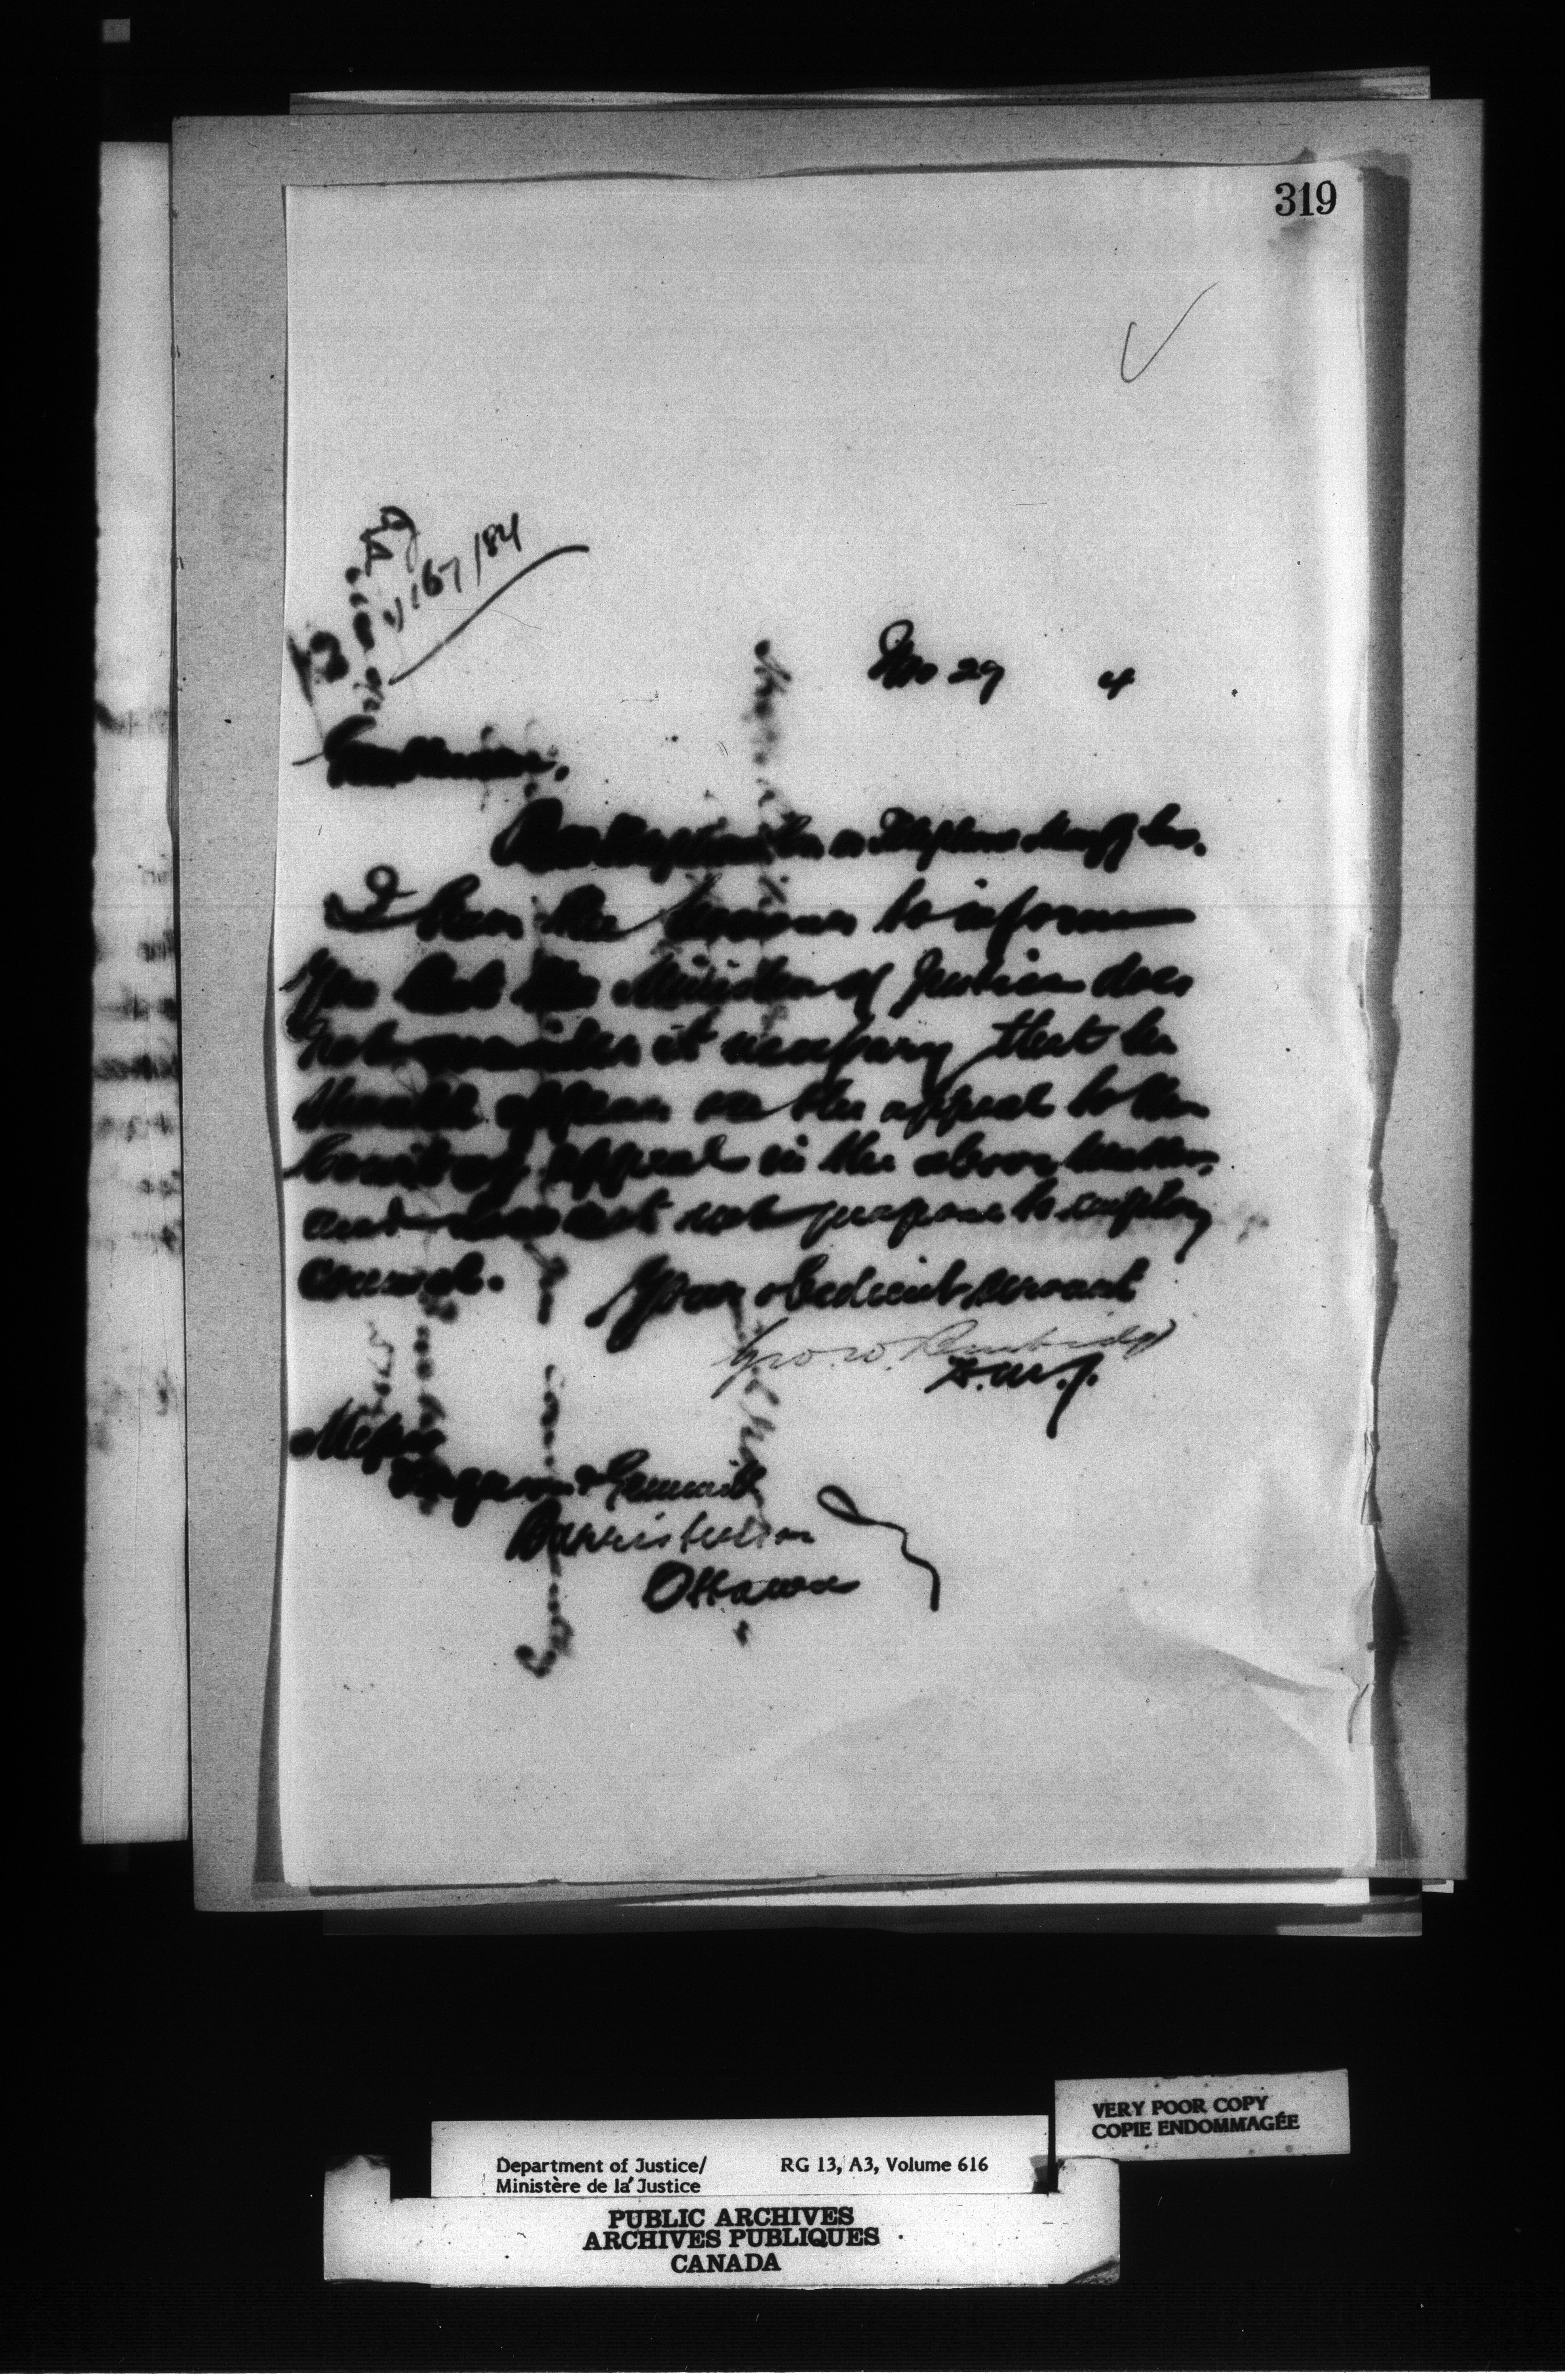 319
167/84
29 4
Gentlemen.
Telephone Manufg Co.
I have the honour to inform
you that the Minister of Justice does
not consider it necessary that he
should appear on the appeal to the
Court of Appeal in the above matter,
and does not propose to employ
counsel.
Your obedient servant
Geo. W. Burbidge
D.M.J.
Messrs
Gemmill
Barristers
Ottawa
VERY POOR COPY
COPIE ENDOMMAGÉE
Department of Justice/ RG 13, A3, Volume 616
Ministère de la Justice
PUBLIC ARCHIVES
ARCHIVES PUBLIQUES
CANADA